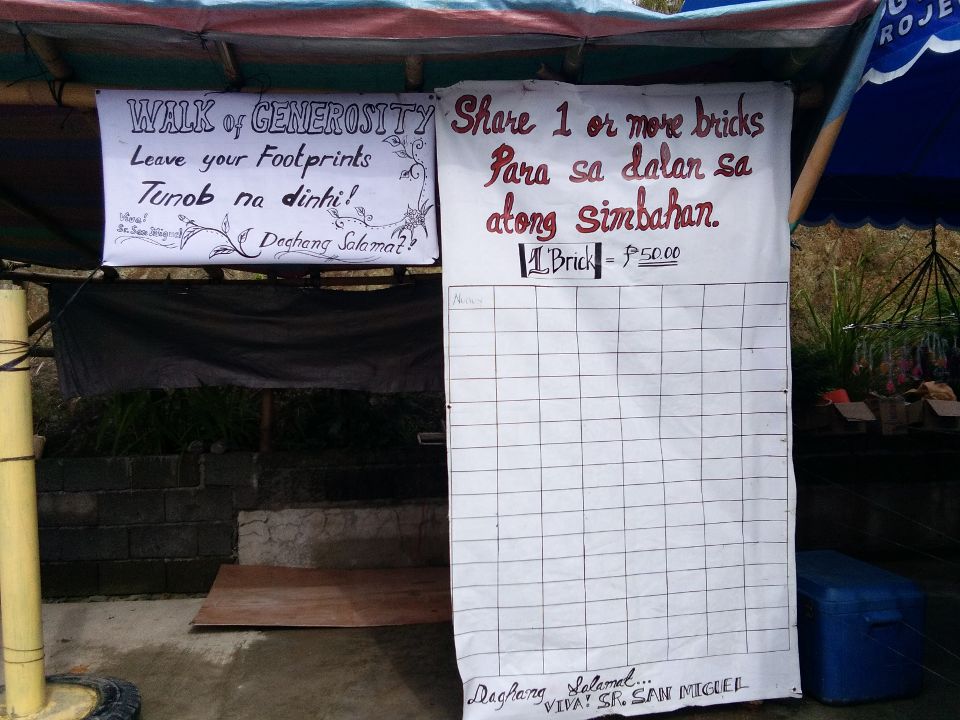 WALK of GENEROSITY
Leave your Footprints
Tunob na dinhi!
Viva!
Sr. San Miguel
Daghang Salamat!!
Share 1 or more bricks
Para sa dalan sa
atong simbahan.
1 Brick = ₱50.00
Daghang Salamat...
VIVA! SR. SAN MIGUEL